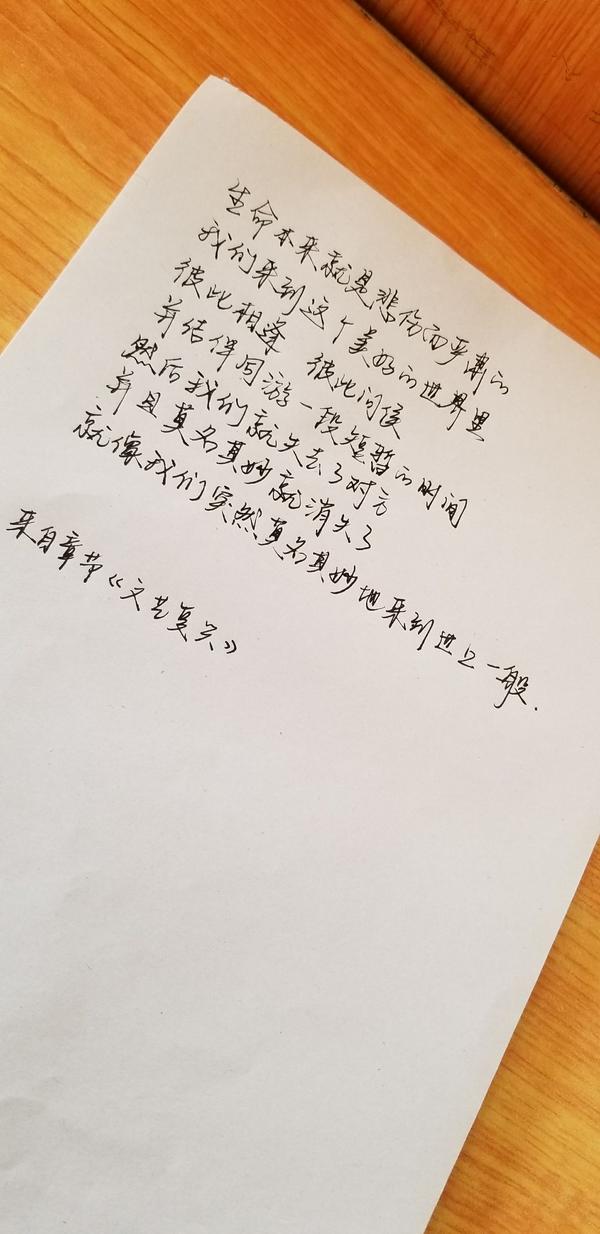 生命本来就是悲伤而严肃的
我们来到这个美好的世界里
彼此相逢 彼此问侯
并结伴同游一段短暂的时间
然后我们就失去了对方
并且莫名其妙就消失了
就像我们突然莫名其妙地来到世上一般.
来自章节《文艺复兴》